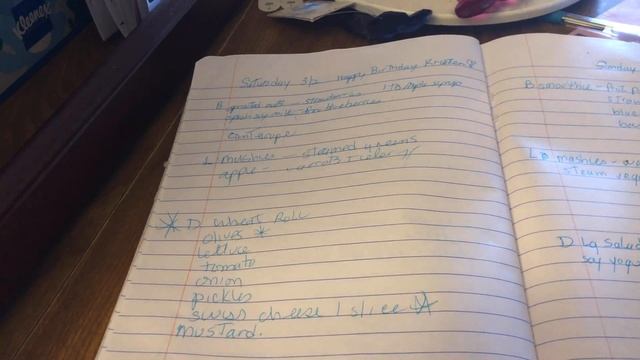 Kleenex
Saturday 3/2 Happy Birthday Kristen
B sprouted oats - strawberries 1 TB Maple syrup
soy milk - blueberries
cantalope
L mushies - steamed greens
apple - carrots 1 celery
* D Wheat Roll
olives *
lettuce
tomato
onion
pickles
swiss cheese 1 slice
mustard.
Sunday
B smoothie -
straw
blue
L mashies -
steam veg
D Lg Salad
soy yogu